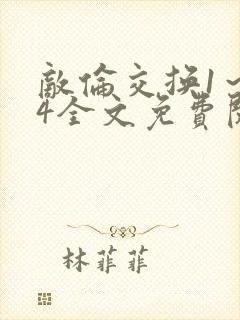 敵倫交換1~
4全文免費閱
林菲菲